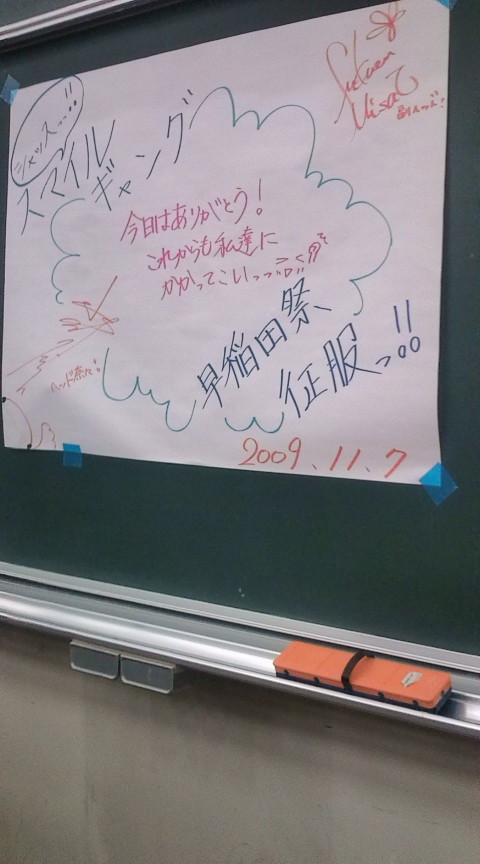 シャッスっっ!!
スマイル
ギャング
今日はありがとう!
これからも私達に
かかってこいっっ
早稲田祭
征服っ!!
2009.11.7